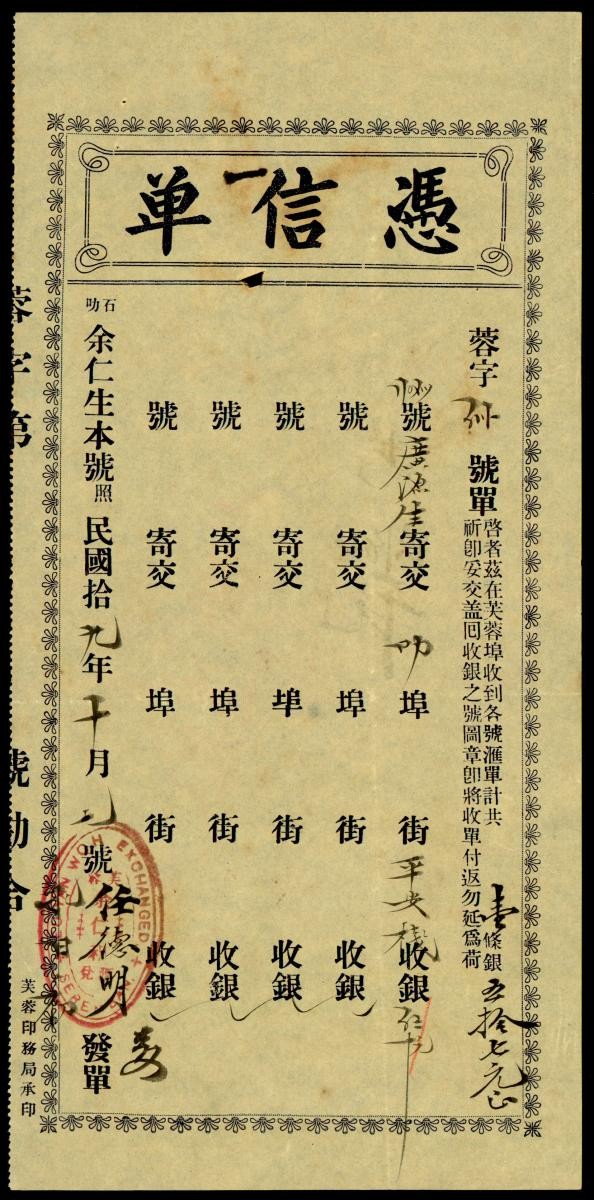 憑信单
蓉字 號單
啓者茲在芙蓉埠收到各號滙單計共 壹條銀 五拾七元正
祈卽妥交盖囘收銀之號圖章卽將收單付返勿延爲荷
號 廣源生 寄交 叻 埠 街 平安棧 收銀
號 寄交 埠 街 收銀
號 寄交 埠 街 收銀
號 寄交 埠 街 收銀
號 寄交 埠 街 收銀
石叻 余仁生本號照 民國拾九年十月九號 任德明 發單
芙蓉印務局承印
蓉字第 號勘合
WOH EXCHANGED
SEREMBAN